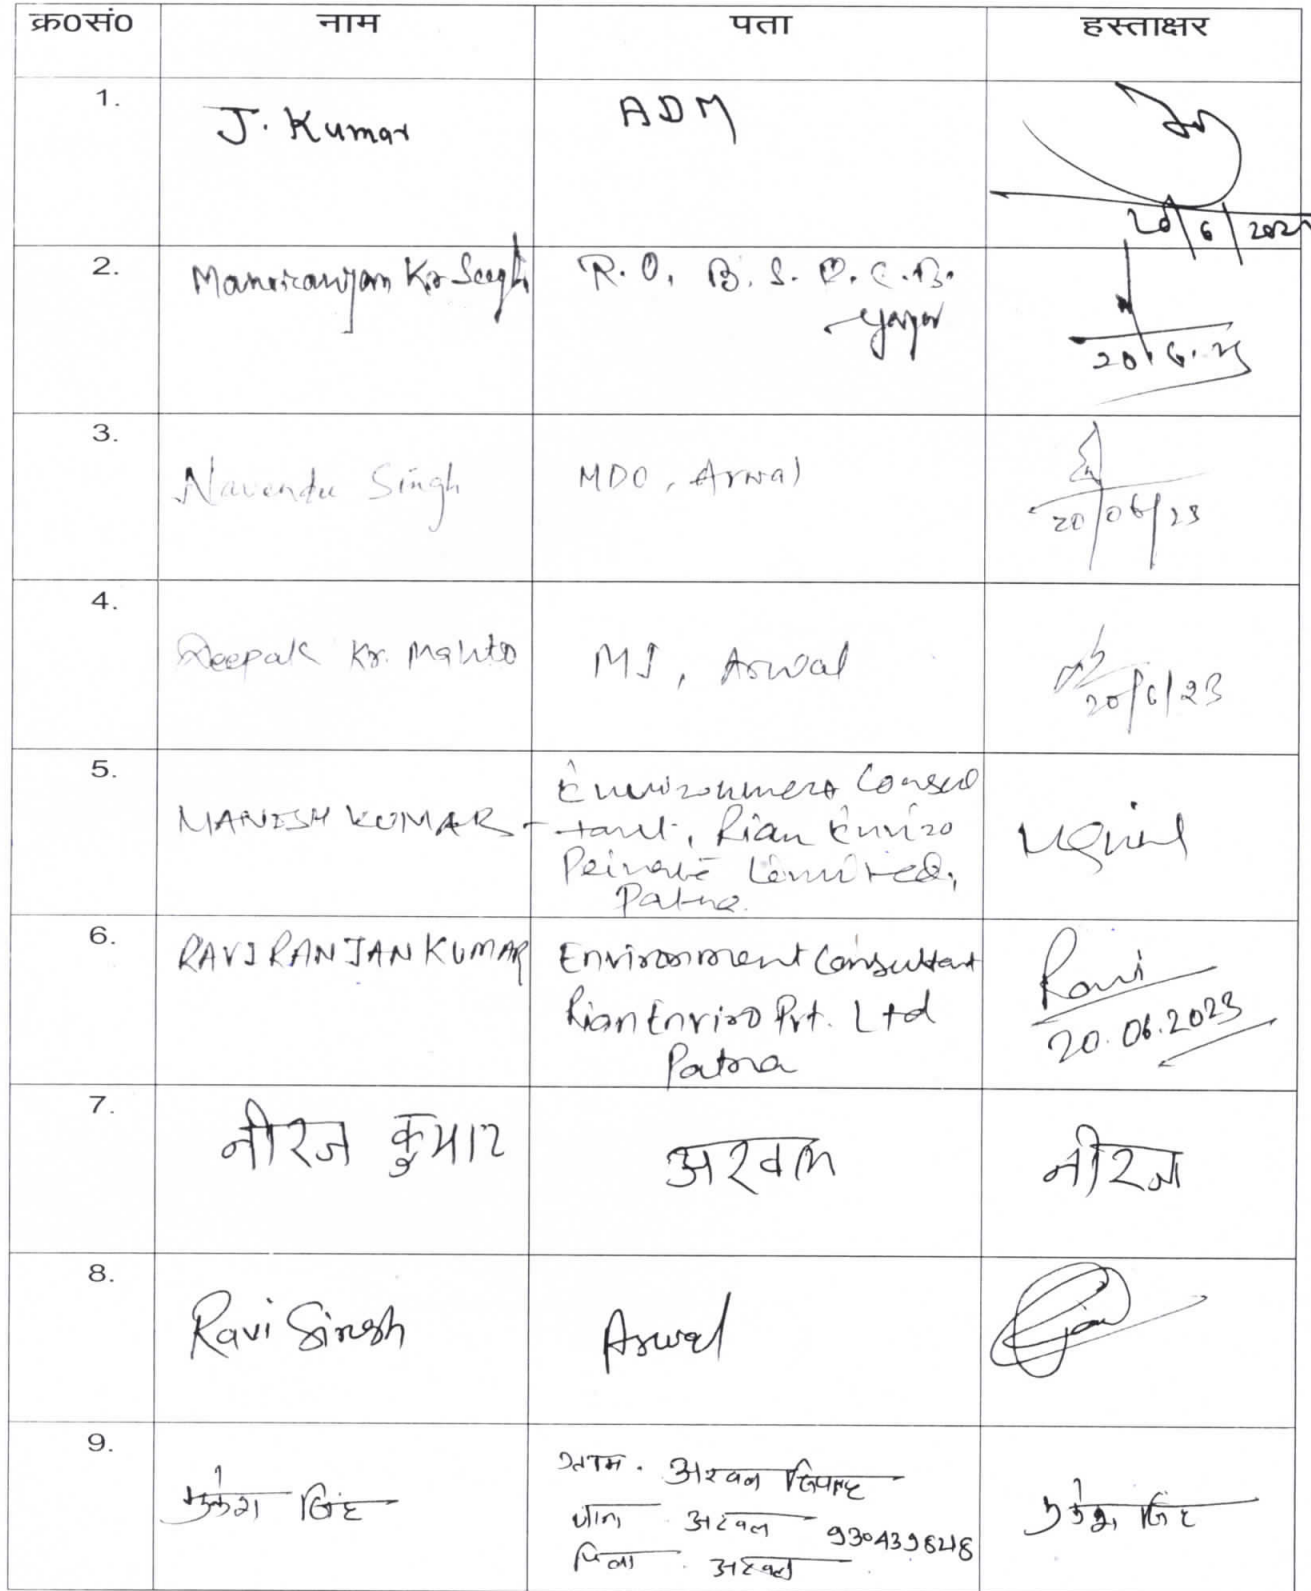 क्र०सं० नाम पता हस्ताक्षर
1. J. Kumar ADM
20/6/2023
2. Manoranjan Kr Singh R.O. B.S.P.C.B.
Gaya
20.6.23
3. Navendu Singh MDO, Arwal
20/06/23
4. Deepak Kr. Mahto MI, Arwal
20/6/23
5. MANISH KUMAR - Environment Consul
tant, Rian Enviro
Private Limited,
Patna.
6. RAVI RANJAN KUMAR Environment Consultant Ravi
Rian Enviro Pvt. Ltd 20.06.2023
Patna
7. नीरज कुमार अरवल नीरज
8. Ravi Singh Arwal
9. सिंह ग्राम. अरवल सिपाह सिंह
थाना अरवल
जिला अरवल